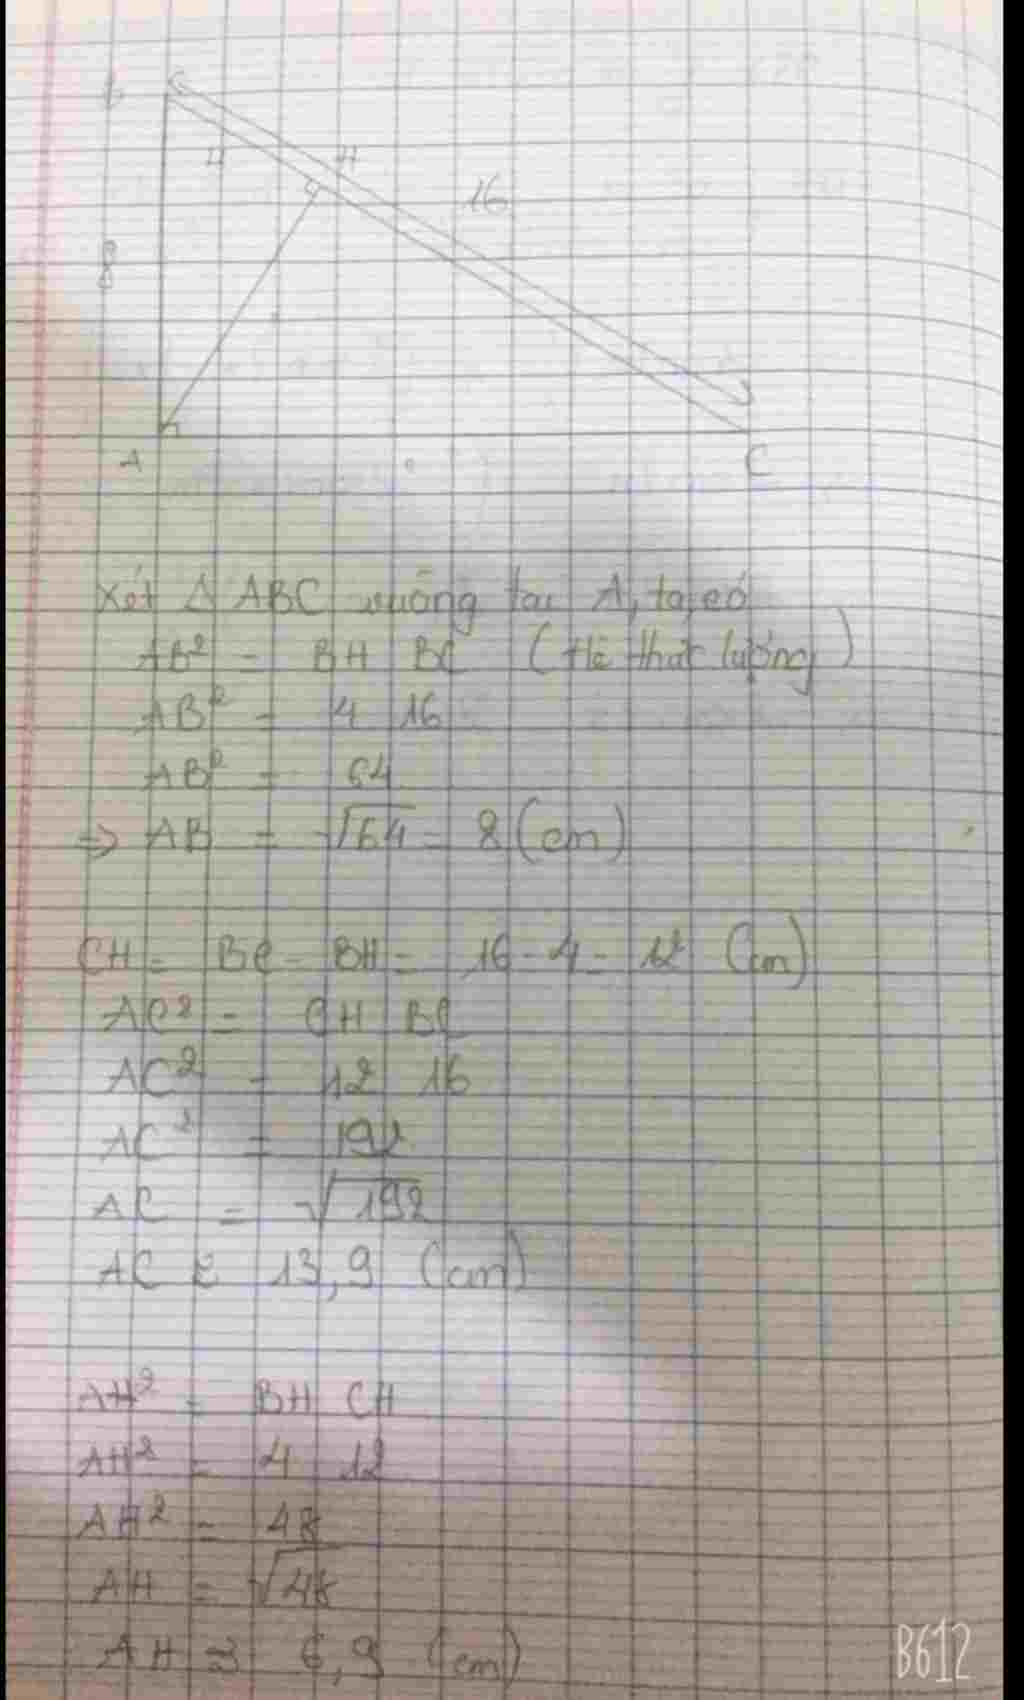 B
4
H
16
8
A
C
Xét Δ ABC vuông tại A, ta có
AB² = BH BC (Hệ thức lượng)
AB² = 4 16
AB² = 64
=> AB = √64 = 8 (cm)
CH = BC - BH = 16 - 4 = 12 (cm)
AC² = CH BC
AC² = 12 16
AC² = 192
AC = √192
AC ≈ 13,9 (cm)
AH² = BH CH
AH² = 4 12
AH² = 48
AH = √48
AH ≈ 6,9 (cm)
B612